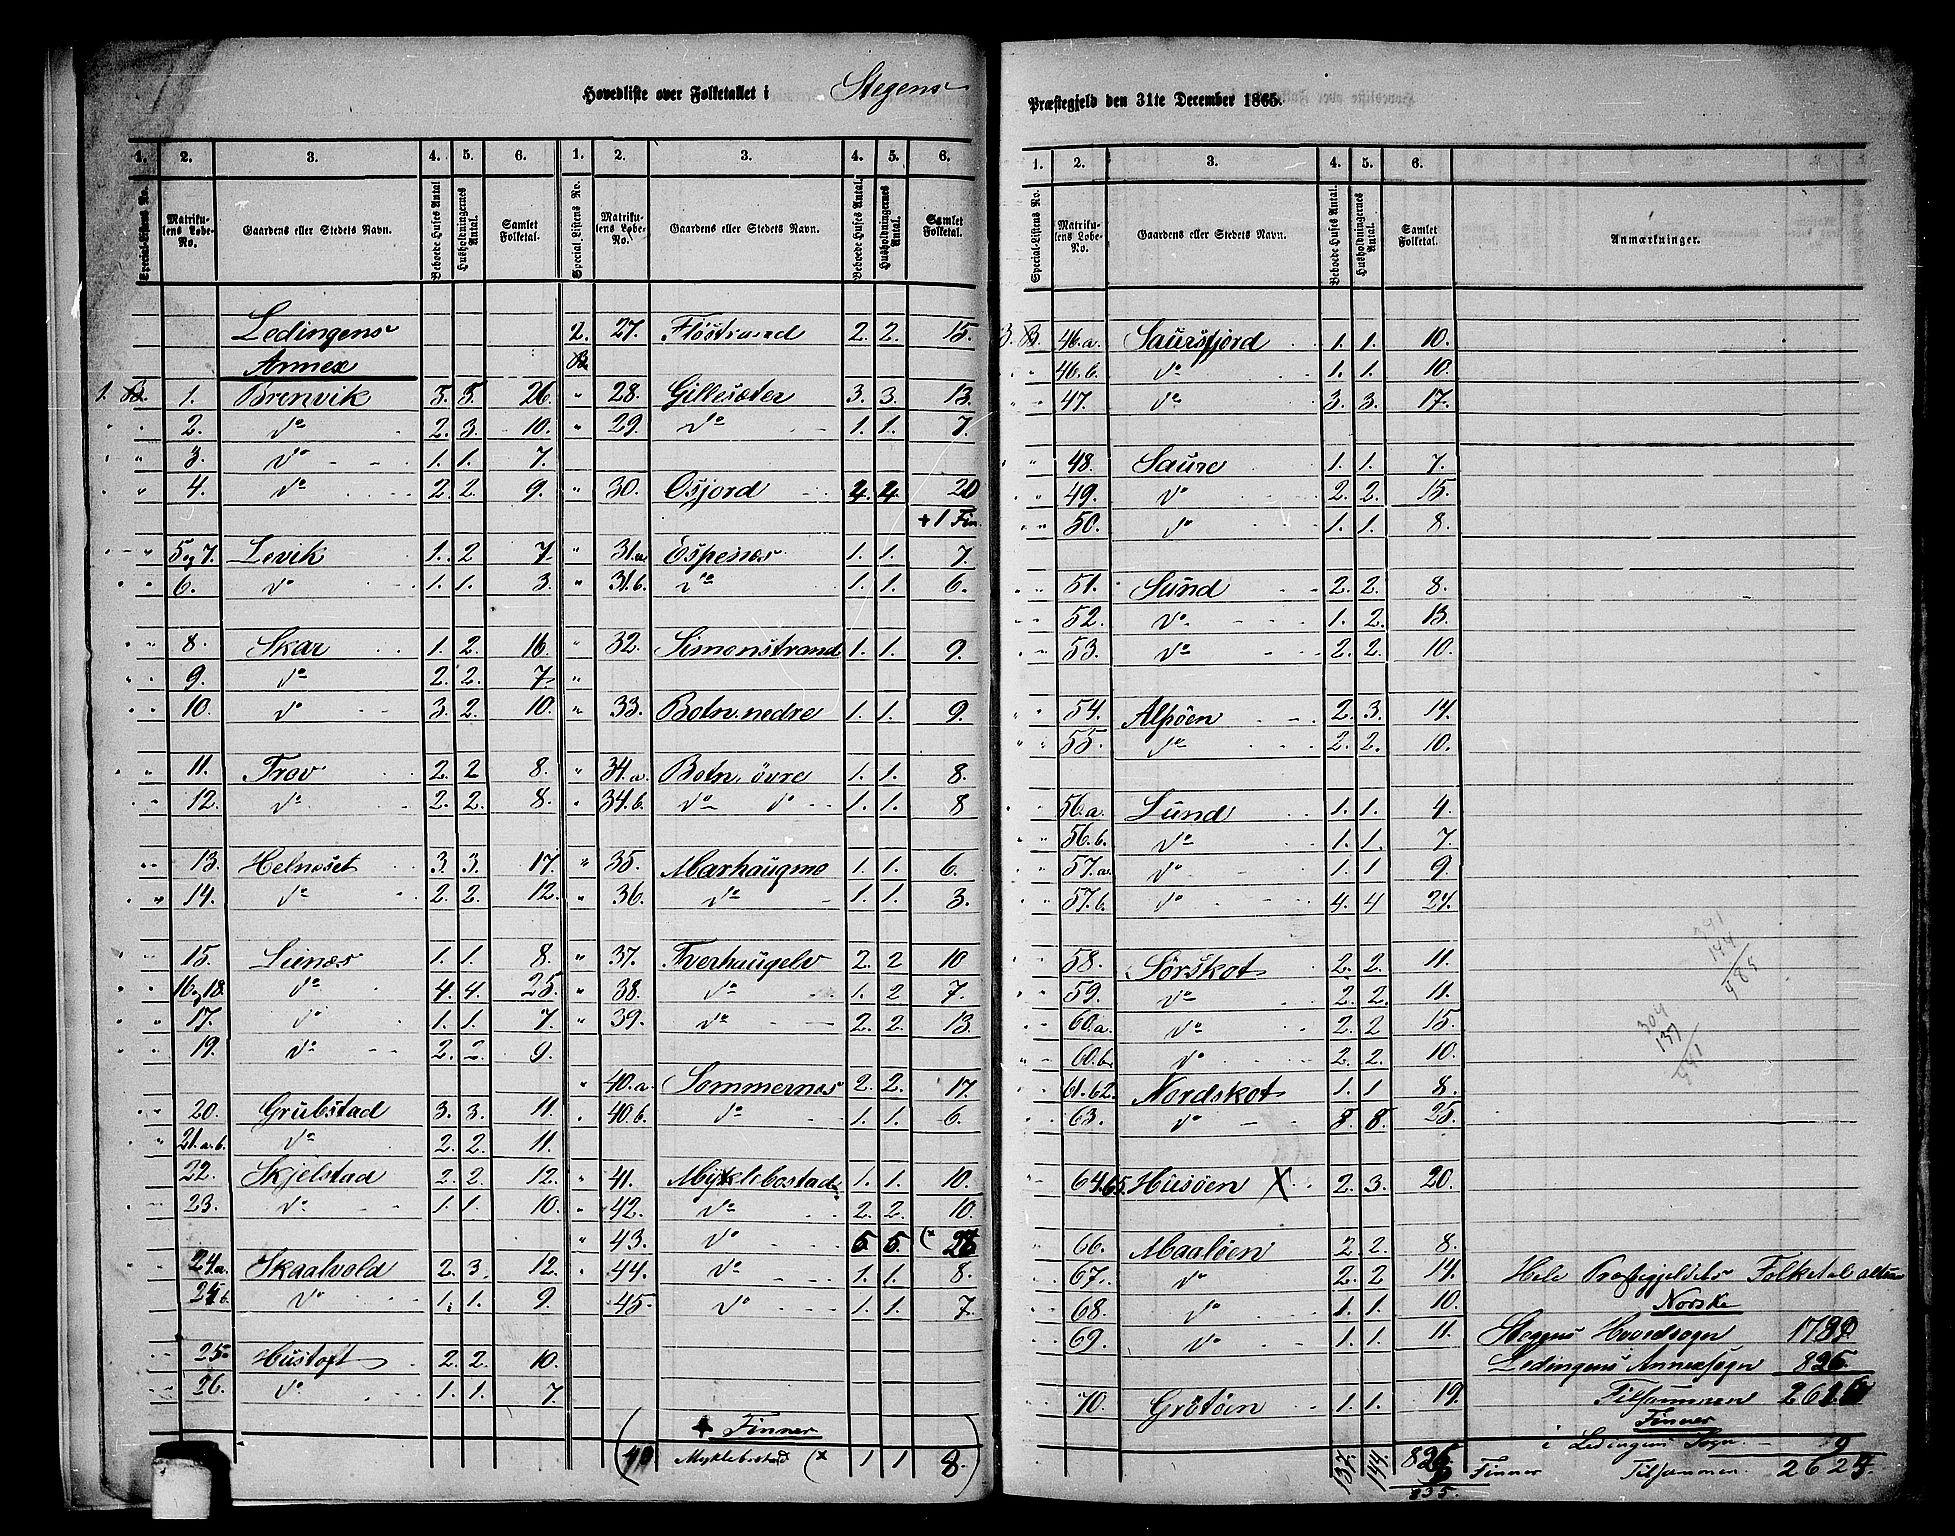 Hovedliste over Folketallet i Stegens
Præstegjeld den 31te December 1865.
1. 2. 3. 4. 5. 6. 1. 2. 3. 4. 5. 6.
Special-Listens No. Matrikulens Løbe-No. Gaardens eller Stedets Navn. Beboede Huses Antal. Husholdningernes Antal. Samlet Folketal. Special Listens No. Matrikulens Løbe-No. Gaardens eller Stedets Navn. Beboede Huses Antal. Husholdningernes Antal. Samlet Folketal.
Ledingens
Annex
1. B. 1. Brenvik 5. 5. 26.
" 2. do 2. 3. 10.
" 3. do 1. 1. 7.
" 4. do 2. 2. 9.
" 5 og 7. Levik 1. 2 7.
" 6. do 1. 1. 3.
" 8. Skar 1. 2. 16.
" 9. do 2. 2. 7.
" 10. do 3. 2. 10.
" 11. Trov 2. 2 8.
" 12. do 2. 2. 8.
" 13. Helnæset 3. 3. 17.
" 14. do 2. 2. 12.
" 15. Lunæs 1. 1. 8.
" 16 og 18. do 4. 4. 25.
" 17. do 1. 1. 7.
" 19. do 2. 2. 9.
" 20. Grubstad 3. 3. 11.
" 21.a.b. do 2. 2. 11.
" 22. Skjelstad 2. 2. 12.
" 23. do 1. 1. 10.
24a. Skaalvold 2. 3. 12.
24b. do 1. 1. 9.
25 Hustoft 2. 2. 10.
26. do 1. 1. 7.
2. B 27. Fløstrand 2. 2. 15.
" 28. Gillesæter 3. 3. 13.
" 29. do 1. 1. 7.
" 30. Osjord 4. 4. 20
+ 1 Fin.
" 31.a Espenæs 1. 1. 7.
" 31.b. do 1. 1. 6.
" 32. Simonstrand 1. 1. 9.
" 33. Botn nedre 1. 1. 9.
" 34.a. Botn øvre 1. 1. 8.
" 34.b. do do 1. 1. 8
" 35. Marhaugmo 1. 1. 6.
" 36. do 1. 1. 3.
" 37. Tverhaugelv 2. 2 10
" 38. do 1. 2 7.
" 39. do 2. 2. 13.
" 40.a. Sommernæs 2. 2. 17.
" 40.b. do 1. 1. 6.
" 41. Myklebostad 1. 1. 10.
" 42. do 2. 2. 10.
" 43. do 5. 5. (x
" 44. do 1. 1. 8.
" 45. do 1. 1. 7.
+ Finner
Myklebostad (x 1 1 8.)
1. 2. 3. 4. 5. 6.
Special-Listens No. Matrikulens Løbe-No. Gaardens eller Stedets Navn. Beboede Huses Antal. Husholdningernes Antal. Samlet Folketal. Anmærkninger.
3. B. 46.a. Saursfjord 1. 1. 10.
" 46.b. do 1. 1. 10.
" 47. do 3. 3. 17.
" 48. Saure 1. 1. 7.
" 49. do 2. 2. 15.
" 50. do 1. 1. 8.
" 51. Sund 2. 2. 8.
" 52. do 1. 2. 13.
" 53. do 2. 2. 10.
" 54. Alpøen 2. 3. 14.
" 55. do 2. 2. 10.
" 56.a. Lund 1. 1. 4.
" 56.b. do 1. 1. 7.
" 57.a. do 1. 1 9.
" 57.b. do 4. 4 24.
" 58. Sørskot 2. 2. 11.
" 59. do 2. 2. 11.
" 60.a. do 2. 2 15.
" 60.b. do 2. 2. 10.
" 61.62. Nordskot 1. 1 8.
" 63. do 8. 8. 25.
" 64.65. Husøen X 2. 3. 20.
" 66. Maaløen 2. 2. 8.
" 67. do 2. 2 14.
" 68. do 1. 1. 10.
" 69. do 1. 1. 11.
70. Grøtøen 1. 1. 19.
137. 144. 826
9
835.
144
137
441
Hele Præstegjeldets Folketal
Norske
Stegens Hovedsogn
Ledingens Annexsogn 826.
Tilsammen
Finner
i Ledingens Sogn 9
Finner Tilsammen